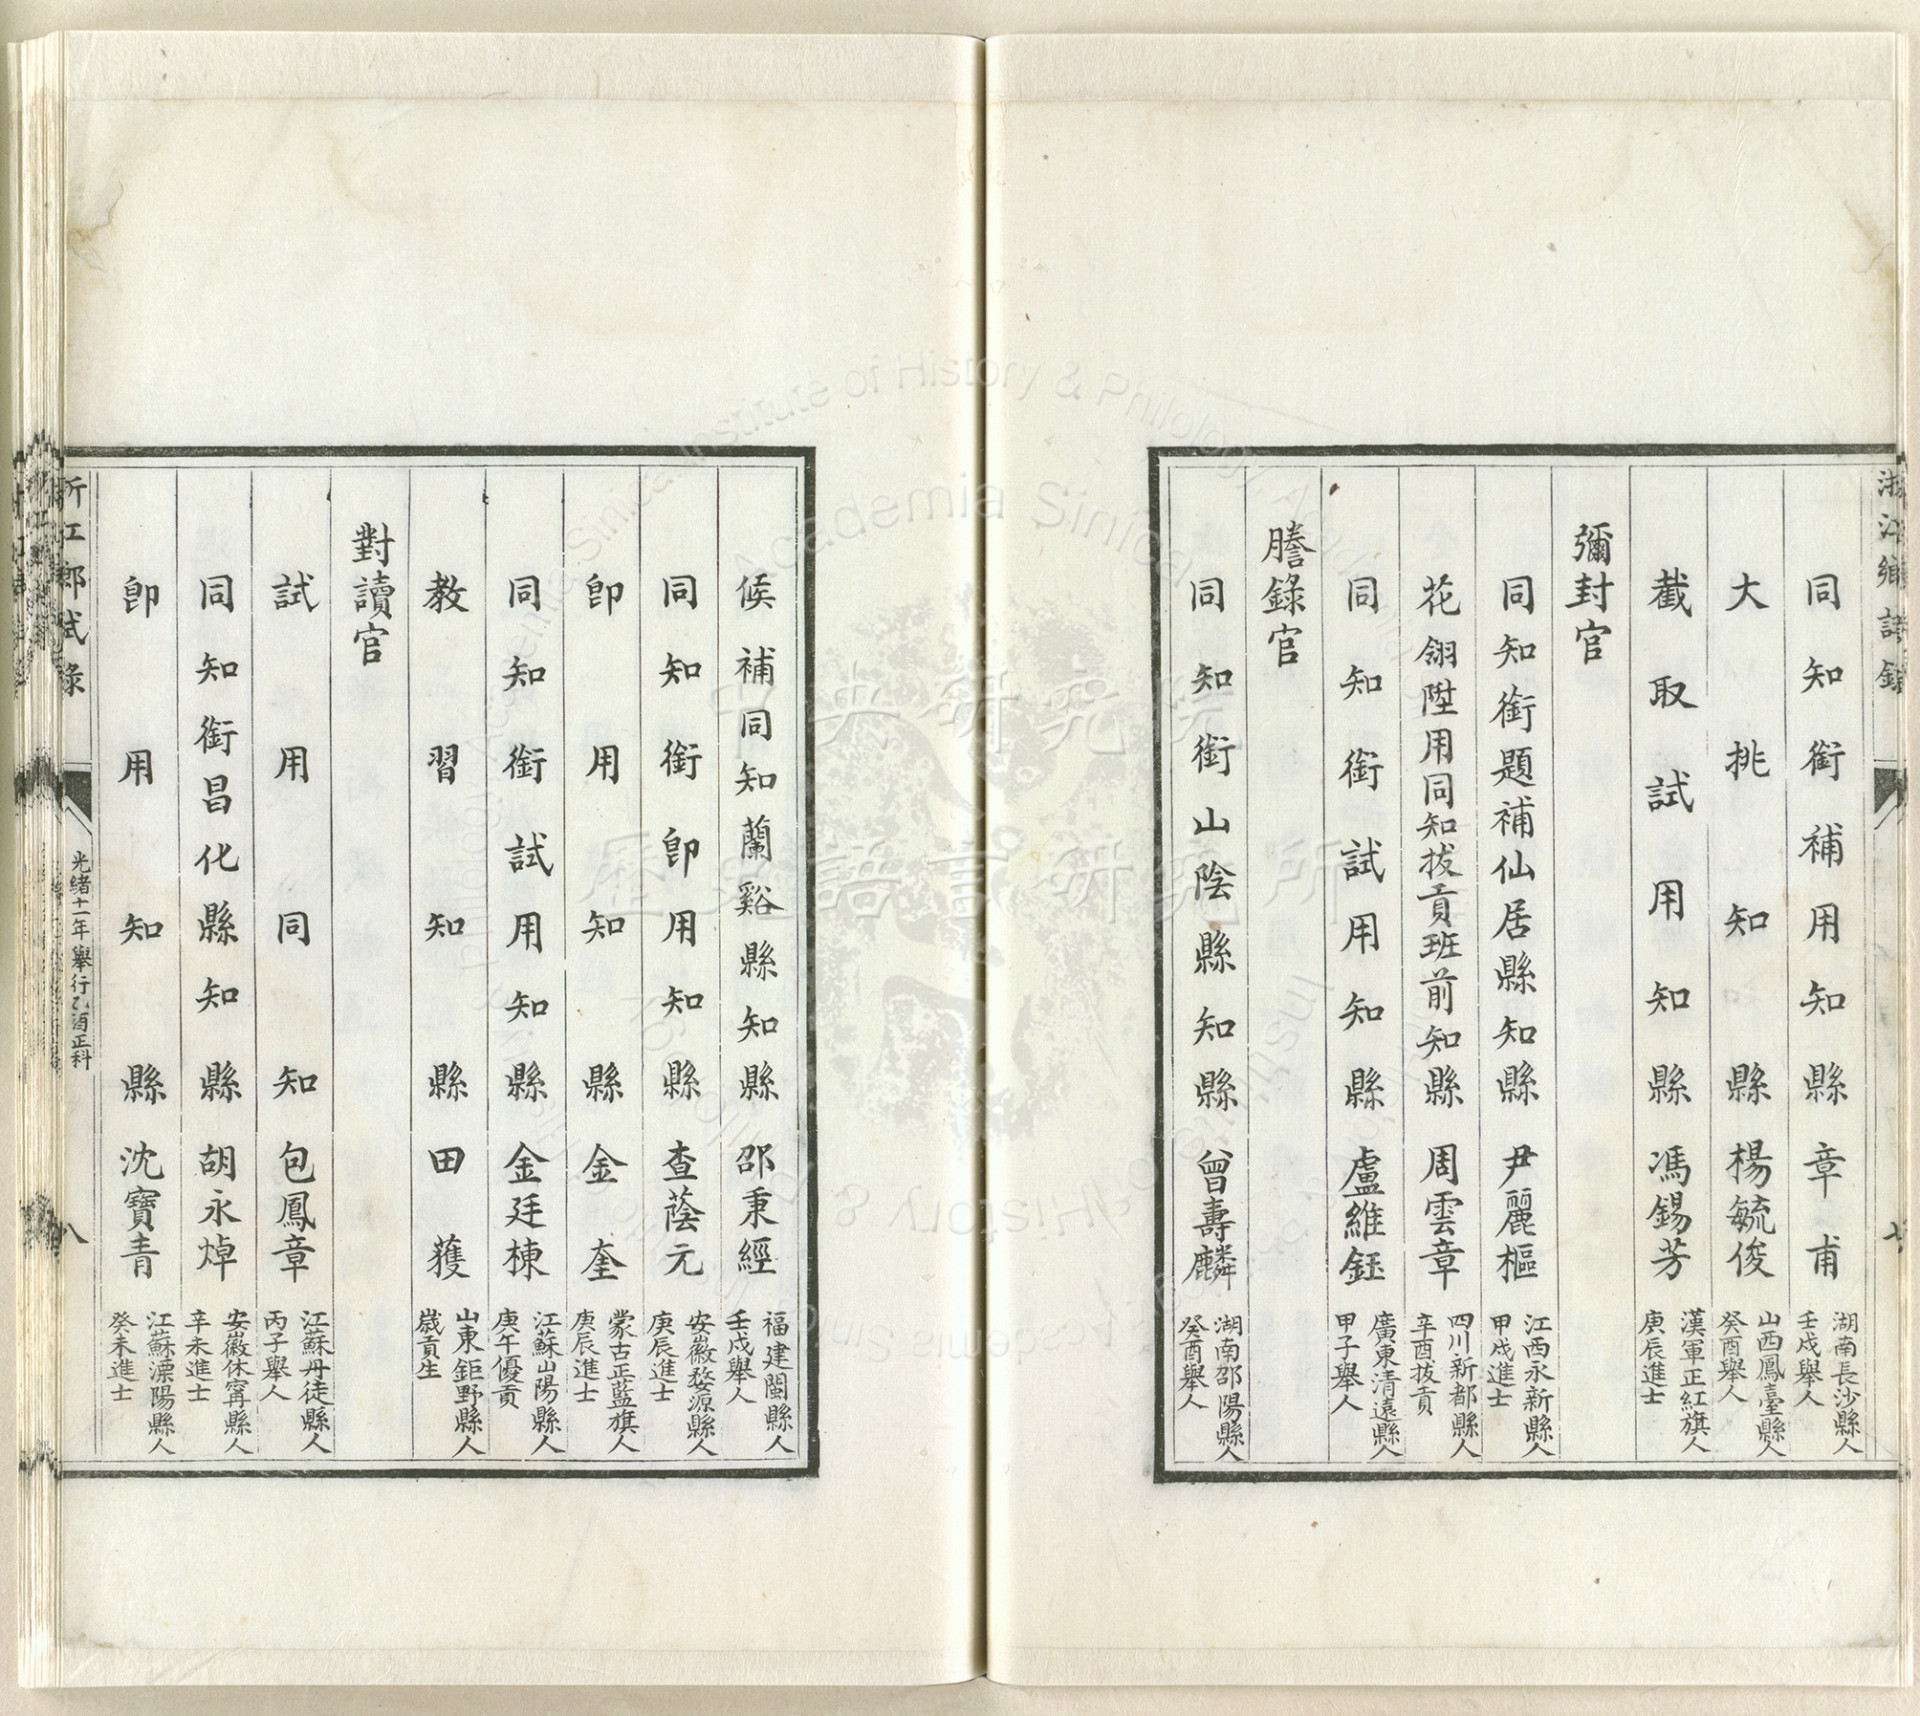 浙江鄉試錄
七
同知銜補用知縣章甫 湖南長沙縣人
壬戌舉人
大挑知縣楊毓俊 山西鳳臺縣人
癸酉舉人
截取試用知縣馮錫芳 漢軍正紅旗人
庚辰進士
彌封官
同知銜題補仙居縣知縣尹麗樞 江西永新縣人
甲戌進士
花翎陞用同知拔貢班前知縣周雲章 四川新都縣人
辛酉拔貢
同知銜試用知縣盧維鈺 廣東清遠縣人
甲子舉人
謄錄官
同知銜山陰縣知縣曾壽麟 湖南邵陽縣人
癸酉舉人
候補同知蘭谿縣知縣邵秉經 福建閩縣人
壬戌舉人
同知銜即用知縣查蔭元 安徽婺源縣人
庚辰進士
即用知縣金奎 蒙古正藍旗人
庚辰進士
同知銜試用知縣金廷棟 江蘇山陽縣人
庚午優貢
教習知縣田獲 山東鉅野縣人
歲貢生
對讀官
試用同知包鳳章 江蘇丹徒縣人
丙子舉人
同知銜昌化縣知縣胡永焯 安徽休寧縣人
辛未進士
即用知縣沈寶青 江蘇溧陽縣人
癸未進士
浙江鄉試錄
光緒十一年舉行乙酉正科
八
中央研究院
歷史語言研究所
Academia Sinica
Institute of History & Philology